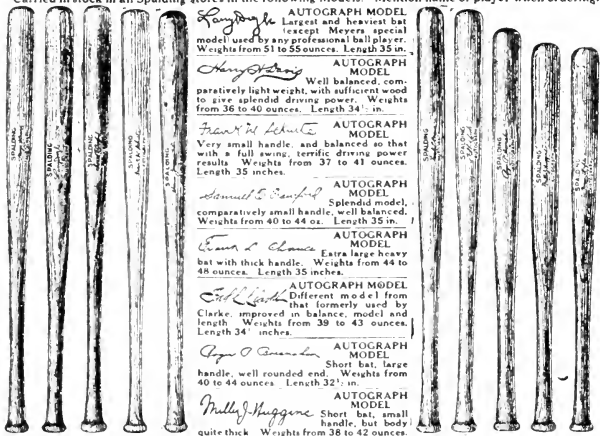 Carried in stock in all Spalding stores in the following models. Mention name of player when ordering.
Larry Doyle AUTOGRAPH MODEL
Largest and heaviest bat
(except Meyers special
model) used by any professional ball player.
Weights from 51 to 55 ounces. Length 35 in.
Harry H Davis AUTOGRAPH
MODEL
Well balanced, com-
paratively light weight, with sufficient wood
to give splendid driving power. Weights
from 36 to 40 ounces. Length 34½ in.
Frank M Schulte AUTOGRAPH
MODEL
Very small handle, and balanced so that
with a full swing, terrific driving power
results Weights from 37 to 41 ounces.
Length 35 inches.
Samuel E Crawford AUTOGRAPH
MODEL
Splendid model,
comparatively small handle, well balanced.
Weights from 40 to 44 oz. Length 35 in.
Frank L Chance AUTOGRAPH
MODEL
Extra large heavy
bat with thick handle. Weights from 44 to
48 ounces. Length 35 inches.
AUTOGRAPH MODEL
Different model from
that formerly used by
Clarke, improved in balance, model and
length Weights from 39 to 43 ounces.
Length 34½ inches.
Roger P Bresnahan AUTOGRAPH
MODEL
Short bat, large
handle, well rounded end. Weights from
40 to 44 ounces Length 32½ in.
Miller J. Huggins AUTOGRAPH
MODEL
Short bat, small
handle, but body
quite thick Weights from 38 to 42 ounces.
SPALDING
SPALDING
SPALDING
SPALDING
SPALDING
SPALDING
SPALDING
SPALDING
SPALDING
SPALDING